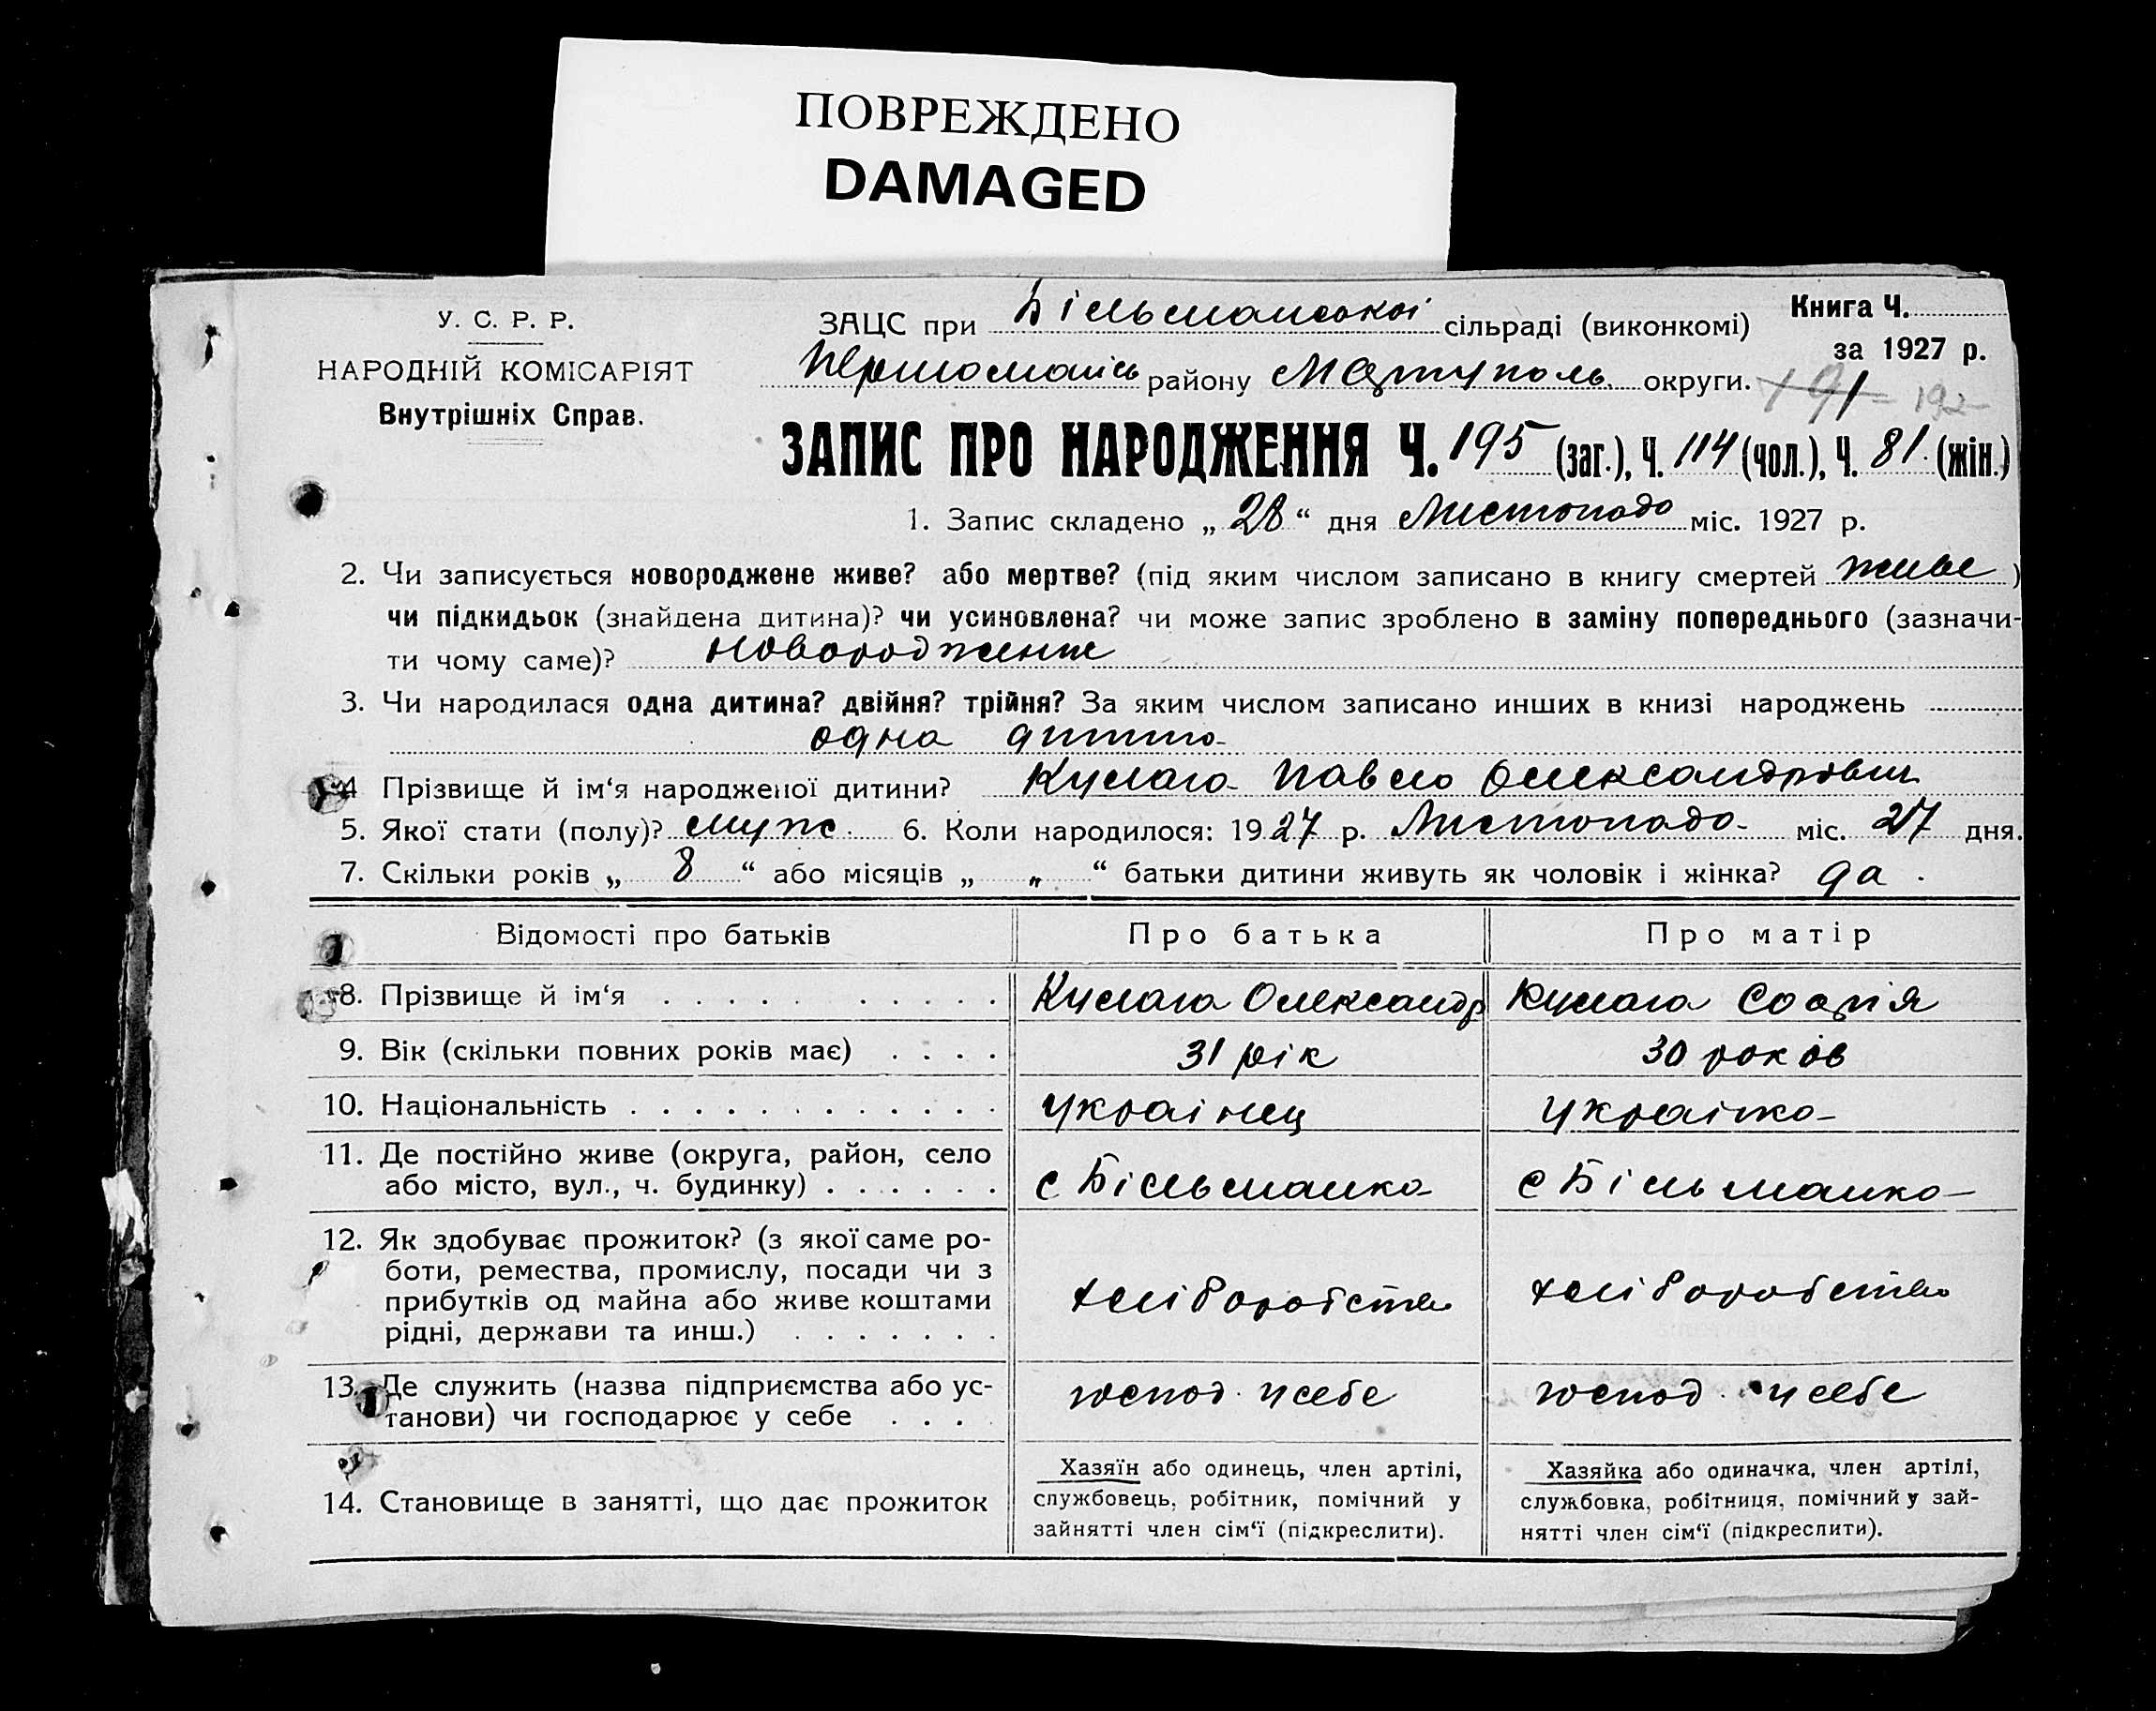 ПОВРЕЖДЕНО
DAMAGED
У. С. Р. Р.
НАРОДНІЙ КОМІСАРІЯТ
Внутрішніх Справ.
ЗАЦС при Більманської сільраді (виконкомі)
Книга Ч.
за 1927 р.
Першомаись району Маріуполь округи.
191 192
ЗАПИС ПРО НАРОДЖЕННЯ Ч. 195 (заг.), Ч. 114 (чол.), Ч. 81 (жін.)
1. Запис складено „ 28 “ дня Листопада міс. 1927 р.
2. Чи записується новороджене живе? або мертве? (під яким числом записано в книгу смертей живе )
чи підкидьок (знайдена дитина)? чи усиновлена? чи може запис зроблено в заміну попереднього (зазначи-
ти чому саме)? новородженне
3. Чи народилася одна дитина? двійня? трійня? За яким числом записано инших в книзі народжень
одна дитина
4 Прізвище й ім‘я народженої дитини? Кулага Павло Олександрович
5. Якої стати (полу)? муж. 6. Коли народилося: 1927 р. Листопада міс. 27 дня.
7. Скільки років „ 8 “ або місяців „ „ “ батьки дитини живуть як чоловік і жінка? да .
Відомості про батьків Про батька Про матір
8. Прізвище й ім‘я . . . . . . . . . . . Кулага Олександр Кулага Софія
9. Вік (скільки повних років має) . . . . 31 рік 30 років
10. Національність . . . . . . . . . . . . Украінец Украінка
11. Де постійно живе (округа, район, село
або місто, вул., ч. будинку) . . . . . . с Більманка с Більманка
12. Як здобуває прожиток? (з якої саме ро-
боти, ремества, промислу, посади чи з
прибутків од майна або живе коштами
рідні, держави та инш.) . . . . . . . хліборобства хліборобства
13. Де служить (назва підприємства або ус-
танови) чи господарює у себе . . . . господ. у себе господ. у себе
14. Становище в занятті, що дає прожиток
Хазяїн або одинець, член артілі,
службовець, робітник, помічний у
зайнятті член сім‘ї (підкреслити).
Хазяйка або одиначка, член артілі,
службовка, робітниця, помічний у зай-
нятті член сім‘ї (підкреслити).